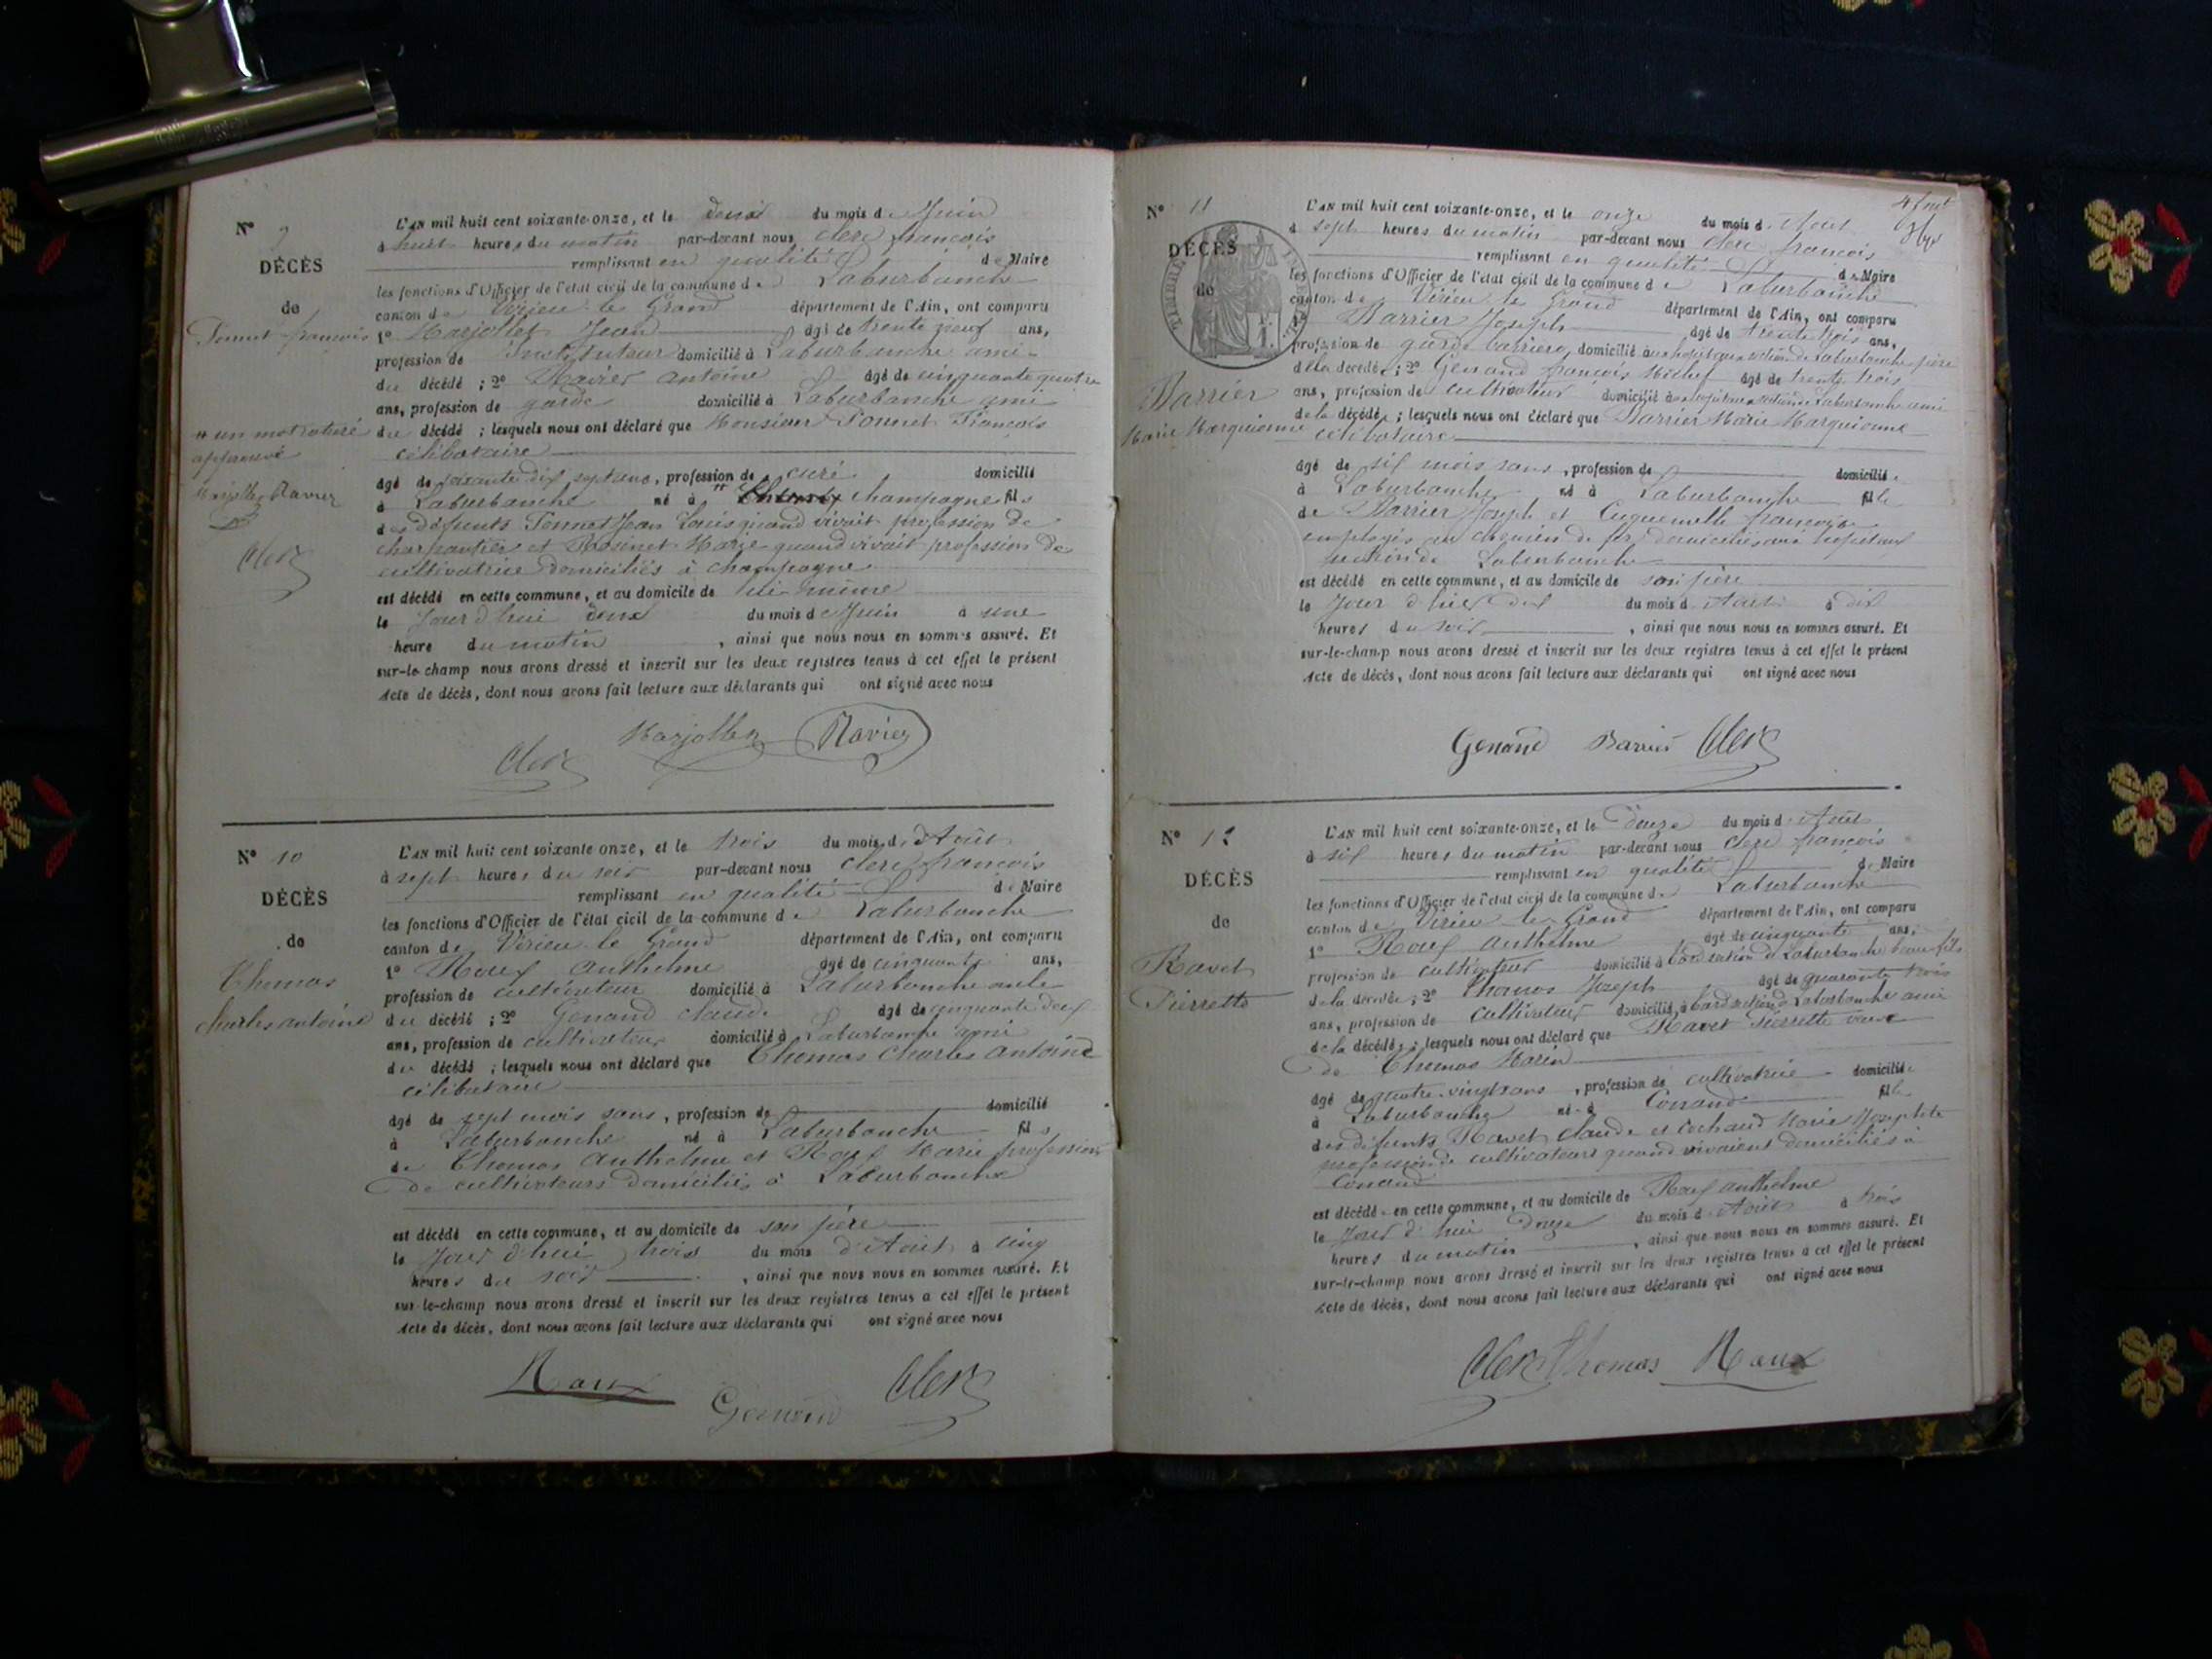 N° 9
DÉCÈS
de
Ponnet françois
# un mot raturé
approuvé
Marjollet Ravier
Clerc
L'AN mil huit cent soixante-onze, et le deux du mois de Juin
à huit heures du matin par-devant nous Clerc françois
remplissant en qualité de Maire
les fonctions d'Officier de l'état civil de la commune de Laburbanche
canton de Virieu le Grand département de l'Ain, ont comparu
1° Marjollet Jean âgé de trente neuf ans,
profession de Instituteur domicilié à Laburbanche ami
du décédé ; 2° Ravier Antoine âgé de cinquante quatre
ans, profession de garde domicilié à Laburbanche ami
du décédé ; lesquels nous ont déclaré que Monsieur Ponnet François
célibataire
âgé de soixante dix sept ans, profession de curé domicilié
à Laburbanche né à # Champagne fils
des défunts Ponnet Jean Louis quand vivait profession de
charpentier et Marie quand vivait profession de
cultivatrice domiciliés à Champagne
est décédé en cette commune, et au domicile de lui même
le Jour d'hui deux du mois de Juin à une
heure du matin , ainsi que nous nous en sommes assuré. Et
sur-le-champ nous avons dressé et inscrit sur les deux registres tenus à cet effet le présent
Acte de décès, dont nous avons fait lecture aux déclarants qui ont signé avec nous
Marjollet Ravier
Clerc
N° 10
DÉCÈS
de
Thomas
Charles antoine
L'AN mil huit cent soixante onze, et le trois du mois d'Août
à sept heures du soir par-devant nous Clerc françois
remplissant en qualité de Maire
les fonctions d'Officier de l'état civil de la commune de Laburbanche
canton de Virieu le Grand département de l'Ain, ont comparu
1° Roux Anthelme âgé de cinquante ans,
profession de cultivateur domicilié à Laburbanche
du décédé ; 2° Genand Claude âgé de cinquante deux
ans, profession de cultivateur domicilié à Laburbanche ami
du décédé ; lesquels nous ont déclaré que Thomas Charles antoine
célibataire
âgé de sept mois sans, profession de domicilié
à Laburbanche né à Laburbanche fils
de Thomas Anthelme et Roux Marie profession
de cultivateurs domiciliés à Laburbanche
est décédé en cette commune, et au domicile de son père
le Jour d'hui trois du mois d'Août à cinq
heures du soir , ainsi que nous nous en sommes assuré. Et
sur le-champ nous avons dressé et inscrit sur les deux registres tenus à cet effet le présent
Acte de décès, dont nous avons fait lecture aux déclarants qui ont signé avec nous
Roux
Genand
Clerc
N° 11
DÉCÈS
de
Barrier
Marie
L'AN mil huit cent soixante-onze, et le onze du mois d'Aout
à sept heures du matin par-devant nous Clerc françois
remplissant en qualité de Maire
les fonctions d'Officier de l'état civil de la commune de Laburbanche
canton de Virieu le Grand département de l'Ain, ont comparu
Barrier Joseph âgé de trente trois ans,
profession de garde barrière domicilié aux hopitaux section de Laburbanche père
de la décédée ; 2° Genand françois âgé de trente trois
ans, profession de cultivateur domicilié aux hopitaux section de Laburbanche ami
de la décédée ; lesquels nous ont déclaré que Barrier Marie
célibataire
âgé de six mois sans , profession de domiciliée
à Laburbanche né à Laburbanche fille
de Barrier Joseph et françoise
employés au chemin de fer domiciliés aux hopitaux
section de Laburbanche
est décédé en cette commune, et au domicile de son père
le Jour d'hier dix du mois d'Aout à dix
heures du soir , ainsi que nous nous en sommes assuré. Et
sur-le-champ nous avons dressé et inscrit sur les deux registres tenus à cet effet le présent
Acte de décès, dont nous avons fait lecture aux déclarants qui ont signé avec nous
Genand Barrier Clerc
N° 12
DÉCÈS
de
Ravet
Pierrette
L'AN mil huit cent soixante-onze, et le douze du mois d'Août
à six heures du matin par-devant nous Clerc françois
remplissant en qualité de Maire
les fonctions d'Officier de l'état civil de la commune de Laburbanche
canton de Virieu le Grand département de l'Ain, ont comparu
1° Roux Anthelme âgé de cinquante ans,
profession de cultivateur domicilié à section de Laburbanche beau fils
de la décédée ; 2° Thomas Joseph âgé de quarante trois
ans, profession de cultivateur domicilié à section de Laburbanche ami
de la décédée ; lesquels nous ont déclaré que Ravet Pierrette veuve
de Thomas Marin
âgé de quatre-vingts ans , profession de cultivatrice domiciliée
à Laburbanche né à Conand fille
des défunts Ravet Claude et Cochand Marie
profession de cultivateurs quand vivaient domiciliés à
Conand
est décédée en cette commune, et au domicile de Roux Anthelme
le Jour d'hui douze du mois d'Août à trois
heures du matin , ainsi que nous nous en sommes assuré. Et
sur-le-champ nous avons dressé et inscrit sur les deux registres tenus à cet effet le présent
Acte de décès, dont nous avons fait lecture aux déclarants qui ont signé avec nous
Clerc Thomas Roux